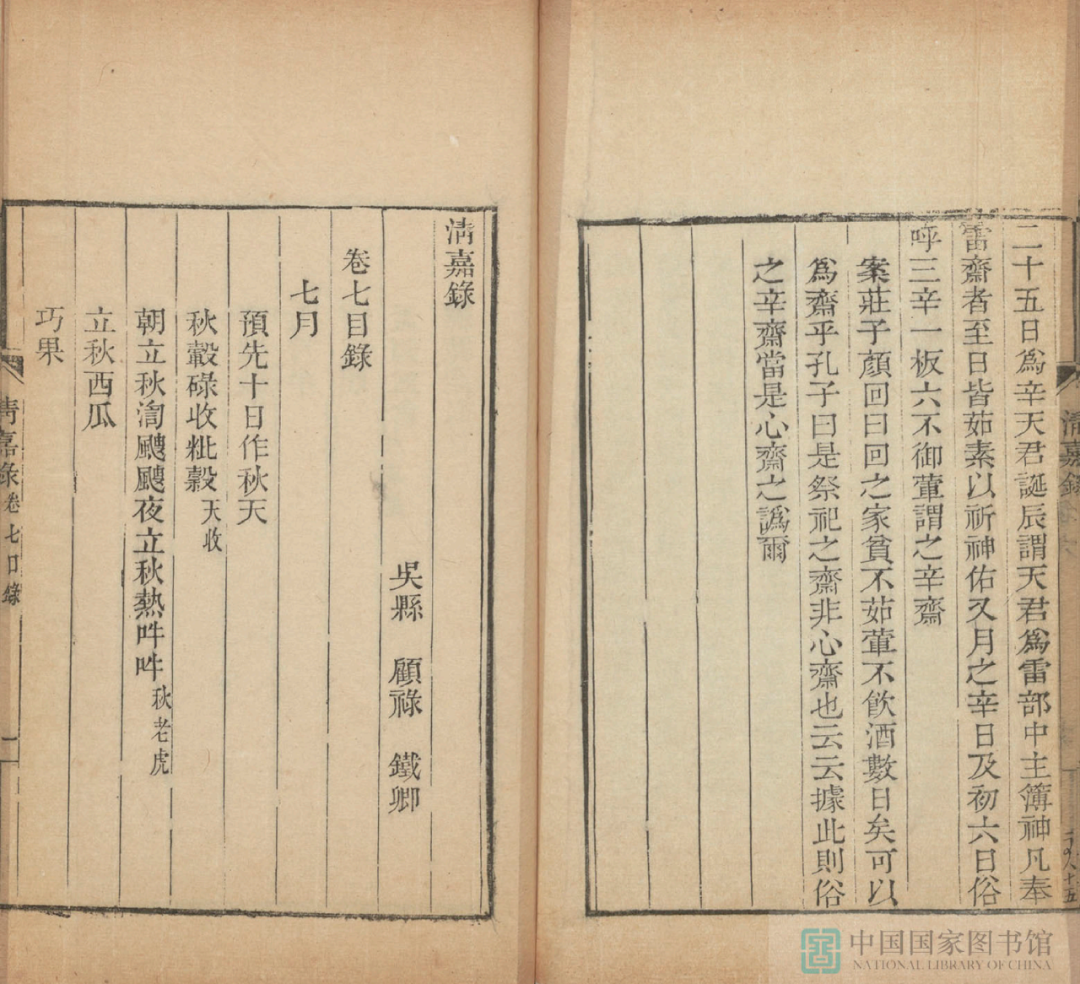 二十五日爲辛天君誕辰謂天君爲雷部中主簿神凡奉
雷齋者至日皆茹素以祈神佑又月之辛日及初六日俗
呼三辛一板六不御葷謂之辛齋
案莊子顏回曰回之家貧不茹葷不飲酒數日矣可以
爲齋乎孔子曰是祭祀之齋非心齋也云云據此則俗
之辛齋當是心齋之譌爾
清嘉錄
清嘉錄
吳縣 顧祿 鐵卿
卷七目錄
七月
預先十日作秋天
秋轂碌收秕穀 天收
朝立秋渹颼颼夜立秋熱吽吽 秋老虎
立秋西瓜
巧果
清嘉錄 卷七目錄 一
中国国家图书馆
NATIONAL LIBRARY OF CHINA